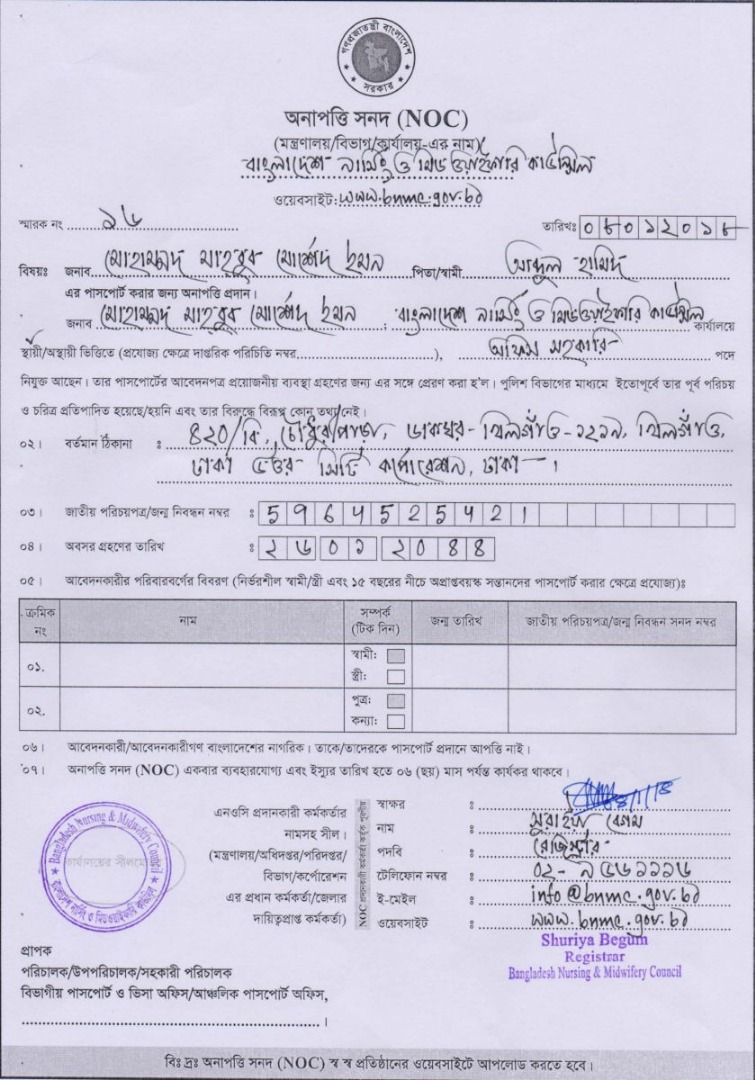 গণপ্রজাতন্ত্রী বাংলাদেশ
সরকার
অনাপত্তি সনদ (NOC)
(মন্ত্রণালয়/বিভাগ/কার্যালয়-এর নাম)
বাংলাদেশ নার্সিং ও মিডওয়াইফারি কাউন্সিল
ওয়েবসাইট: www.bnmc.gov.bd
স্মারক নং ১৬ তারিখঃ
বিষয়ঃ জনাব মোহাম্মদ মাহবুব মোর্শেদ ইমন পিতা/স্বামী আব্দুল হামিদ
এর পাসপোর্ট করার জন্য অনাপত্তি প্রদান।
জনাব মোহাম্মদ মাহবুব মোর্শেদ ইমন, বাংলাদেশ নার্সিং ও মিডওয়াইফারি কাউন্সিল কার্যালয়ে
স্থায়ী/অস্থায়ী ভিত্তিতে (প্রযোজ্য ক্ষেত্রে দাপ্তরিক পরিচিতি নম্বর....................), অফিস সহকারি পদে
নিযুক্ত আছেন। তার পাসপোর্টের আবেদনপত্র প্রয়োজনীয় ব্যবস্থা গ্রহণের জন্য এর সঙ্গে প্রেরণ করা হ'ল। পুলিশ বিভাগের মাধ্যমে ইতোপূর্বে তার পূর্ব পরিচয়
ও চরিত্র প্রতিপাদিত হয়েছে/হয়নি এবং তার বিরুদ্ধে বিরূপ কোন তথ্য নেই।
০২। বর্তমান ঠিকানা ঃ ৪২০/বি, চৌধুরীপাড়া, ডাকঘর- খিলগাঁও-১২১৯, খিলগাঁও,
ঢাকা উত্তর সিটি কর্পোরেশন, ঢাকা-।
০৩। জাতীয় পরিচয়পত্র/জন্ম নিবন্ধন নম্বর ঃ 5964525421
০৪। অবসর গ্রহণের তারিখ ঃ ২৬০১২০৪৪
০৫। আবেদনকারীর পরিবারবর্গের বিবরণ (নির্ভরশীল স্বামী/স্ত্রী এবং ১৫ বছরের নীচে অপ্রাপ্তবয়স্ক সন্তানদের পাসপোর্ট করার ক্ষেত্রে প্রযোজ্য)ঃ
ক্রমিক নং নাম সম্পর্ক (টিক দিন) জন্ম তারিখ জাতীয় পরিচয়পত্র/জন্ম নিবন্ধন সনদ নম্বর
০১. স্বামী:
স্ত্রী:
০২. পুত্র:
কন্যা:
০৬। আবেদনকারী/আবেদনকারীগণ বাংলাদেশের নাগরিক। তাকে/তাদেরকে পাসপোর্ট প্রদানে আপত্তি নাই।
০৭। অনাপত্তি সনদ (NOC) একবার ব্যবহারযোগ্য এবং ইস্যুর তারিখ হতে ০৬ (ছয়) মাস পর্যন্ত কার্যকর থাকবে।
Bangladesh Nursing & Midwifery Council
কার্যালয়ের সীলমোহর
বাংলাদেশ নার্সিং ও মিডওয়াইফারি কাউন্সিল
এনওসি প্রদানকারী কর্মকর্তার
নামসহ সীল।
(মন্ত্রণালয়/অধিদপ্তর/পরিদপ্তর/
বিভাগ/কর্পোরেশন
এর প্রধান কর্মকর্তা/জেলার
দায়িত্বপ্রাপ্ত কর্মকর্তা)
NOC প্রদানকারী কর্মকর্তা কর্তৃক পূরণীয়
স্বাক্ষর ঃ
নাম ঃ সুরাইয়া বেগম
পদবি ঃ রেজিস্ট্রার
টেলিফোন নম্বর ঃ ০২- ৯৫৬১১১৬
ই-মেইল ঃ info@bnmc.gov.bd
ওয়েবসাইট ঃ www.bnmc.gov.bd
Shuriya Begum
Registrar
Bangladesh Nursing & Midwifery Council
প্রাপক
পরিচালক/উপপরিচালক/সহকারী পরিচালক
বিভাগীয় পাসপোর্ট ও ভিসা অফিস/আঞ্চলিক পাসপোর্ট অফিস,
.................................................।
বিঃ দ্রঃ অনাপত্তি সনদ (NOC) স্ব স্ব প্রতিষ্ঠানের ওয়েবসাইটে আপলোড করতে হবে।